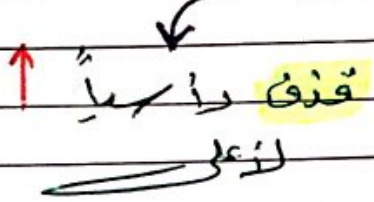 قذف رأسياً
لأعلى